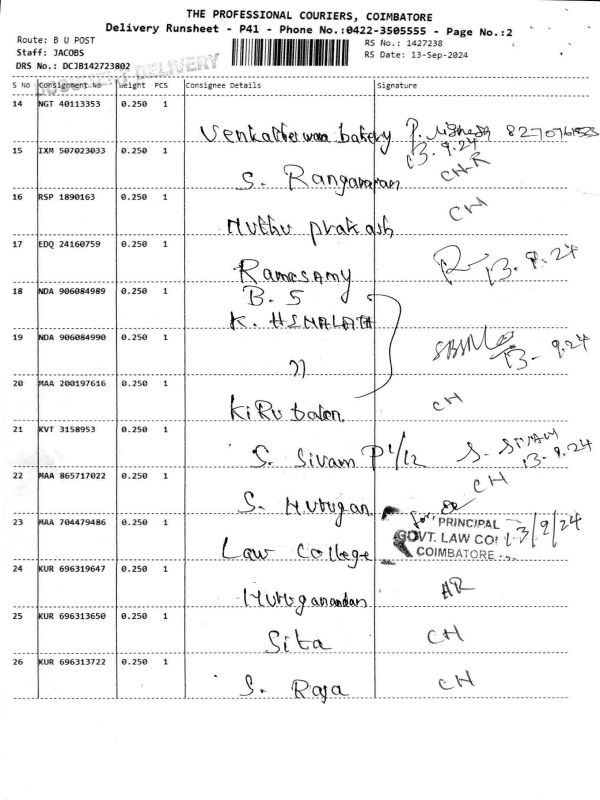 THE PROFESSIONAL COURIERS, COIMBATORE
Delivery Runsheet - P41 - Phone No.:0422-3505555 - Page No.:2
Route: B U POST
RS No.: 1427238
Staff: JACOBS
RS Date: 13-Sep-2024
DRS No.: DCJB142723802
DELIVERY
S No Consignment No Weight PCS Consignee Details Signature
14 NGT 40113353 0.250 1
bakery 13.9.24
15 IXM 507023033 0.250 1
S. CH-R
16 RSP 1890163 0.250 1
Muthu prakash CH
17 EDQ 24160759 0.250 1
Ramasamy 13.9.24
18 NDA 906084989 0.250 1
B. S
K. HEMALATH
19 NDA 906084990 0.250 1
" 13-9.24
20 MAA 200197616 0.250 1
Kirubalan CH
21 KVT 3158953 0.250 1
S. Sivam P1/12 S. SIVAM
13.9.24
22 MAA 865717022 0.250 1
S. Murugan CH
23 MAA 704479486 0.250 1
Law College for PRINCIPAL
GOVT. LAW COL 13/9/24
COIMBATORE
24 KUR 696319647 0.250 1
Muruganandan AR
25 KUR 696313650 0.250 1
Sita CH
26 KUR 696313722 0.250 1
S. Raja CH